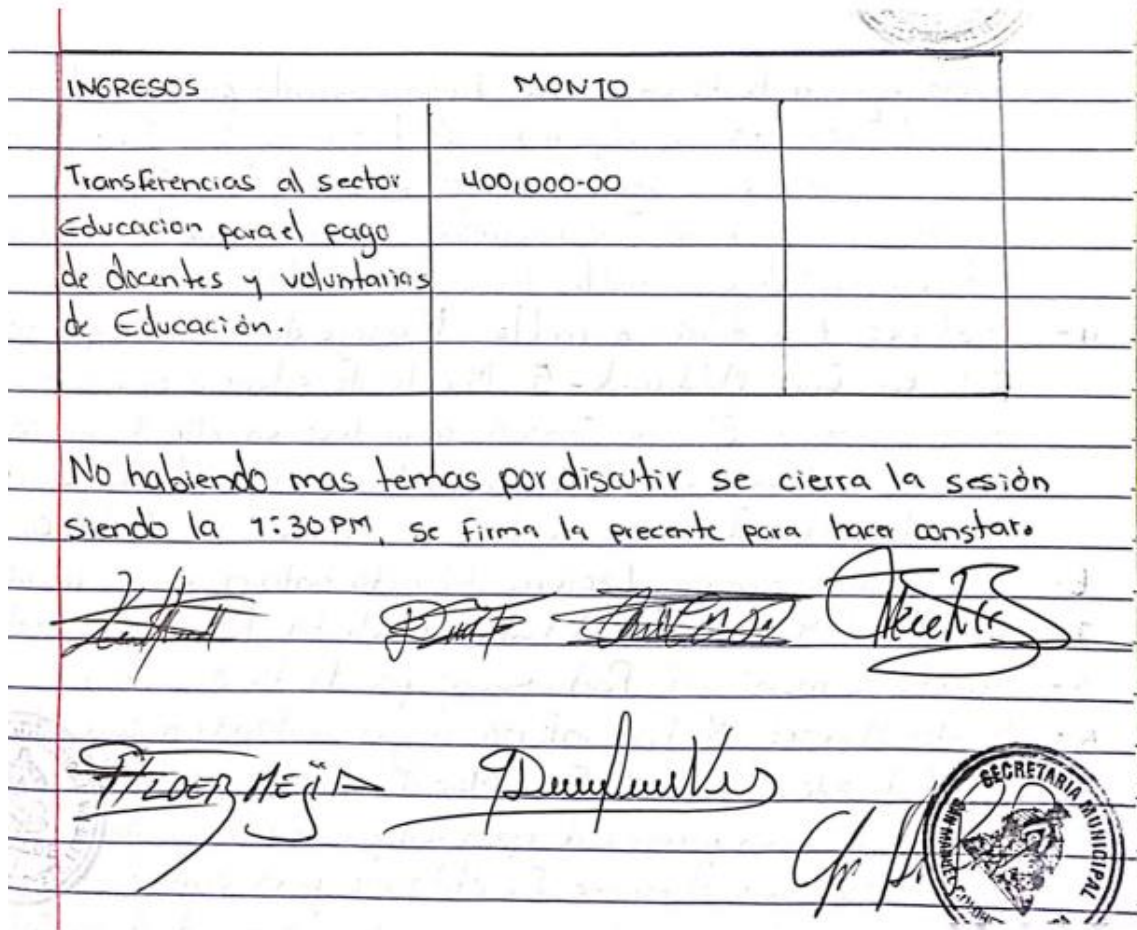 INGRESOS MONTO
Transferencias al sector 400,000-00
Educacion para el pago
de docentes y voluntarias
de Educación.
No habiendo mas temas por discutir se cierra la sesión
siendo la 1:30PM, se firma la precente para hacer constar.
HLDER MEJIA
SECRETARIA MUNICIPAL